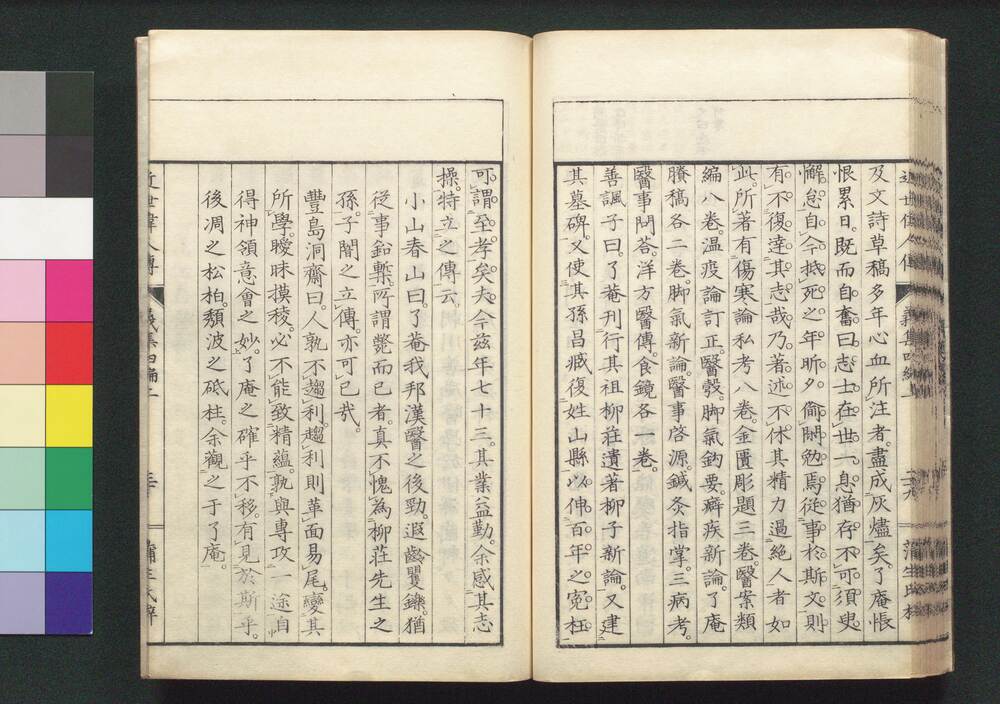 及文詩草稿多年心血所注者。盡成灰燼矣。了庵悵
恨累日。既而自奮曰。志士在世。一息猶存。不可須臾
懈怠。自今抵死之年。昕夕僶勉焉。從事於斯文。則
有不復達其志哉。乃著述不休。其精力過絕人者如
此。所著有傷寒論私考八卷。金匱彫題三卷。醫案類
編八卷。溫疫論訂正。醫彀。脚氣鈎要。癖疾新論。了庵
賸稿各二卷。脚氣新論。醫事啓源。鍼灸指掌。三病考。
醫事問答。洋方醫傳。食鏡各一卷。
善諷子曰。了菴刊行其祖柳莊遺著柳子新論。又建
其墓碑。又使其孫昌臧復姓山縣。以伸百年之寃枉。
可謂至孝矣。夫今茲年七十三。其業益勤。余感其志
操。特立之傳云。
小山春山曰。了菴我邦漢醫之後勁。遐齡矍鑠。猶
從事鉛槧。所謂斃而已者。真不愧為柳莊先生之
孫。子闇之立傳。亦可已哉。
豐島洞齋曰。人孰不趨利。趨利則革面易尾。變其
所學。曖昧摸稜。必不能致精蘊。孰與專攻一途。自
得神領意會之妙。了庵之確乎不移。有見於斯乎。
後凋之松柏。頹波之砥柱。余觀之于了庵。
近世偉人傳
義集四編下
三十
蒲生氏梓